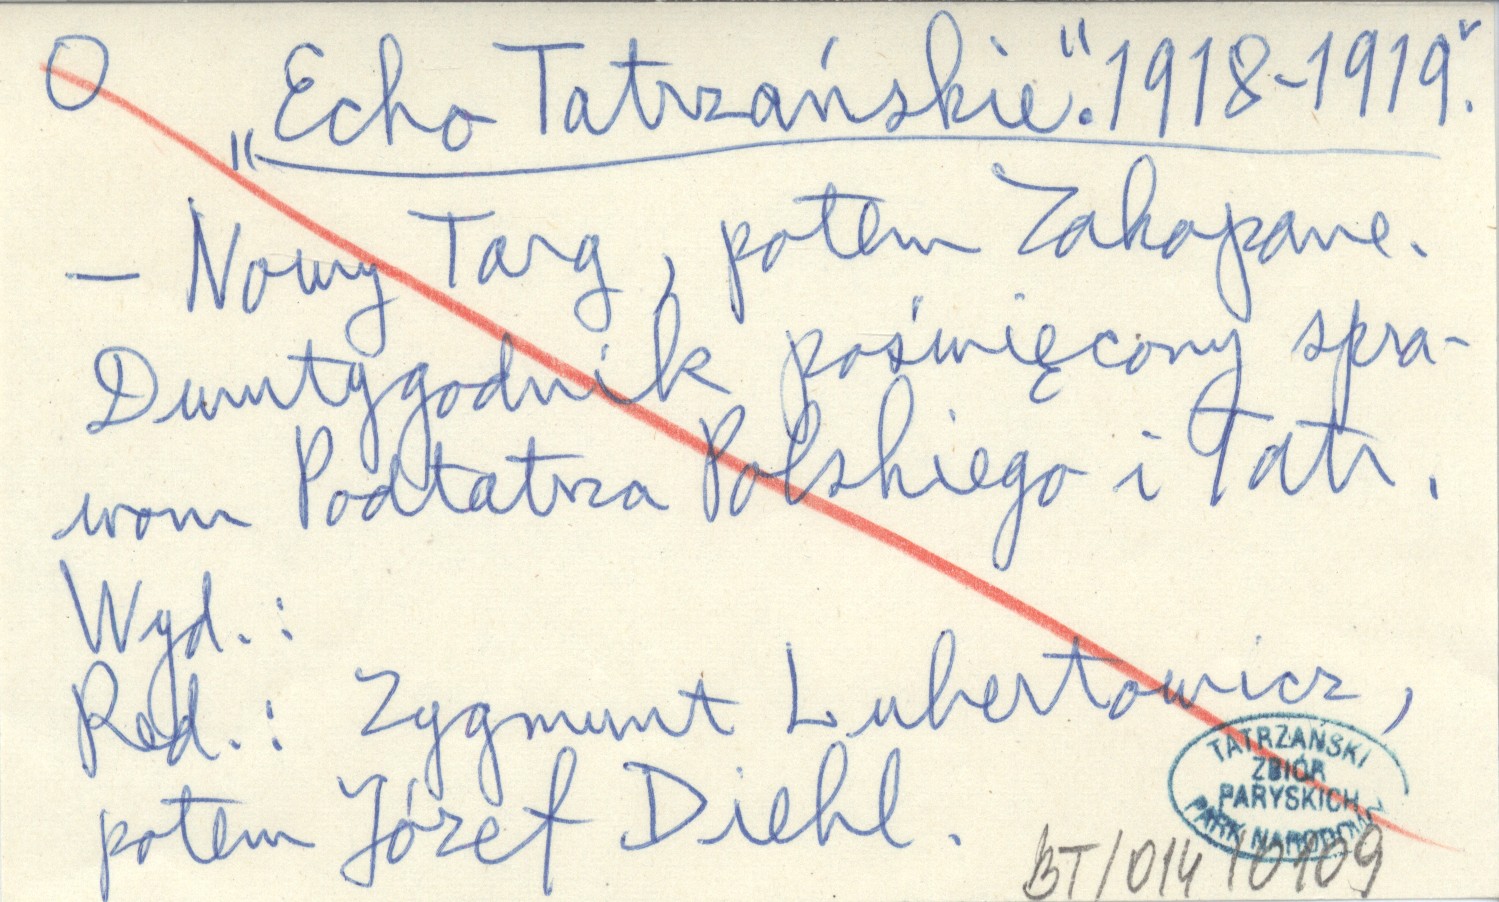 O
„Echo Tatrzańskie“. 1918-1919.
— Nowy Targ, potem Zakopane.
Dwutygodnik poświęcony spra-
wom Podtatrza Polskiego i Tatr.
Wyd.:
Red.: Zygmunt Lubertowicz,
potem Józef Diehl.
TATRZAŃSKI
ZBIÓR
PARYSKICH
PARK NARODOWY
BT/014 10109